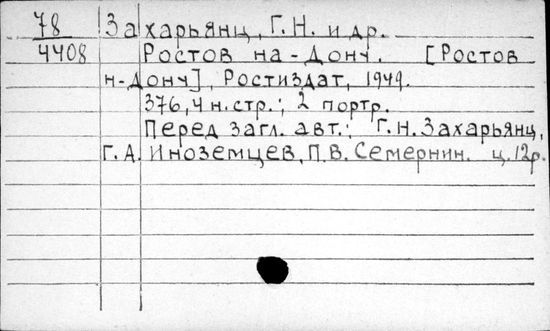 78 Захарьянц, Г.Н. и др.
4408 Ростов на-Дону. [Ростов
н-Дону], Ростиздат, 1949.
376,4 н.стр.; 2 портр.
Перед загл. авт.: Г.Н.Захарьянц,
Г.А. Иноземцев, П.В. Семернин. ц.12р.